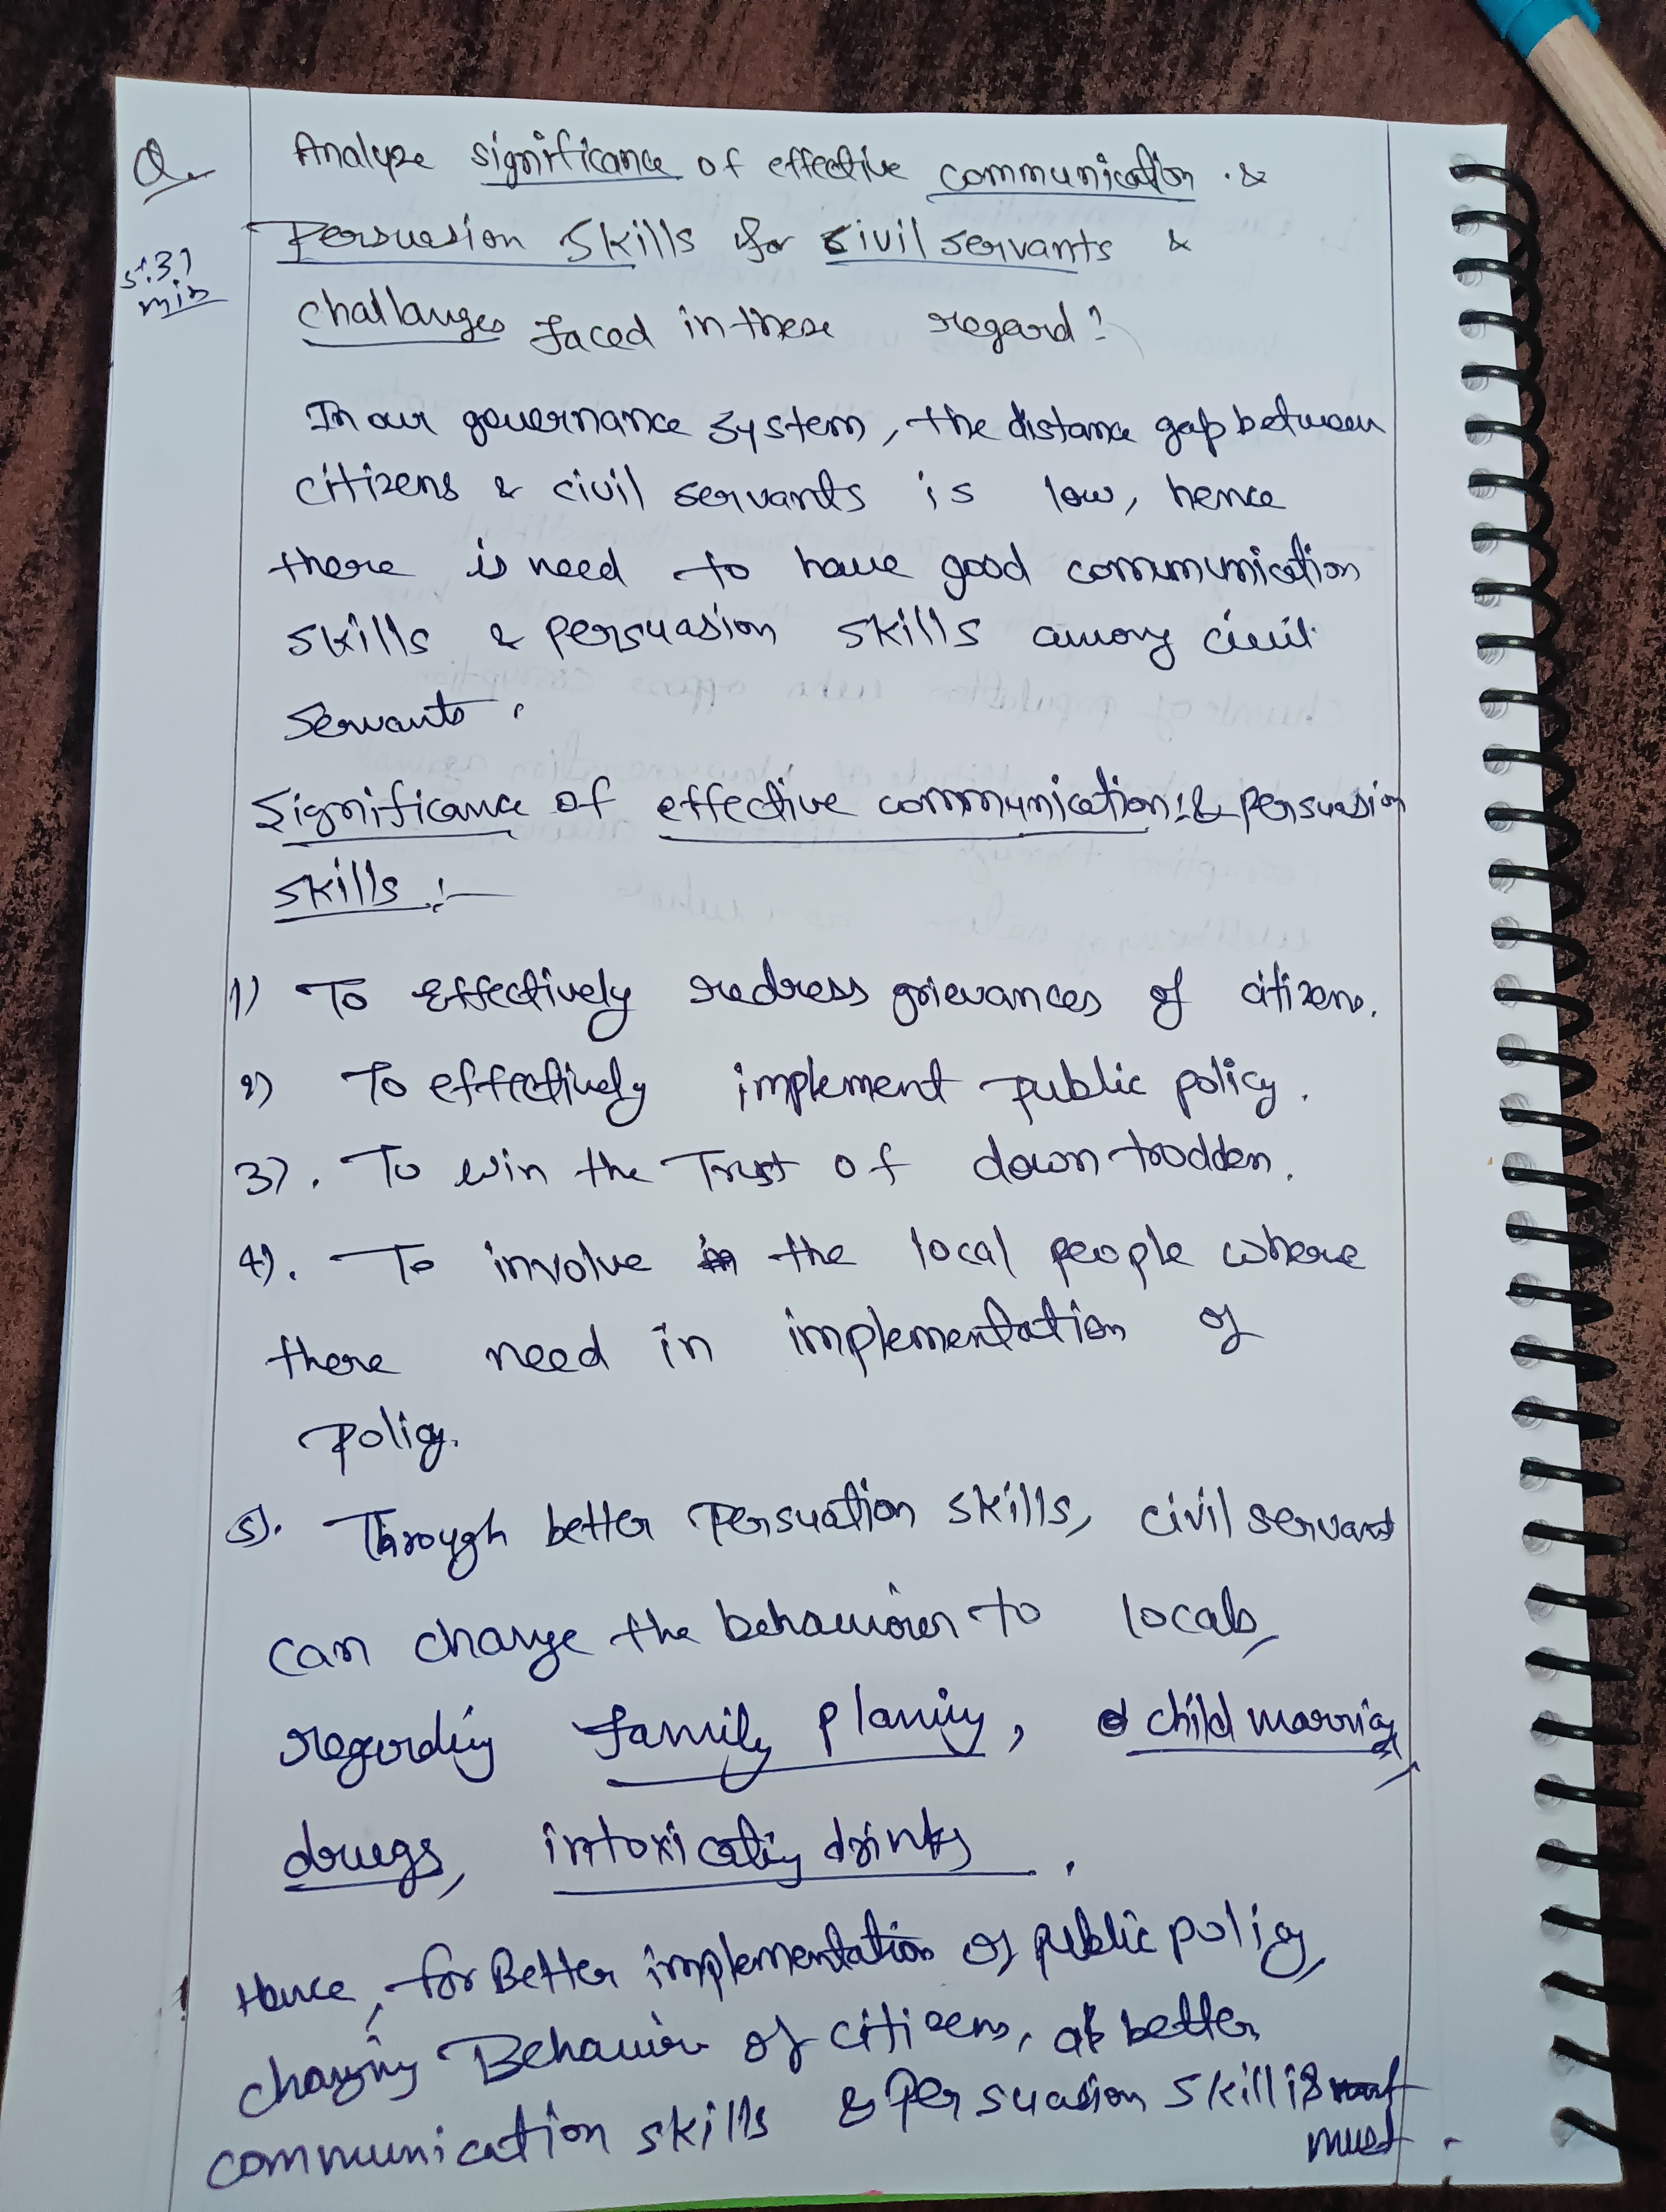 Q. Analyze significance of effective communication &
Persuasion Skills for civil servants &
5:31
min
challanges faced in these regard?
In our governance system, the distance gap between
citizens & civil servants is low, hence
there is need to have good communication
skills & persuasion skills among civil
servants.
Significance of effective communication & persuasion
skills :-
1) To Effectively redress grievances of citizens.
2) To effectively implement public policy.
3). To win the Trust of downtrodden.
4). To involve the local people where
there need in implementation of
policy.
5). Through better Persuation skills, civil servant
can change the behaviour to locals,
regarding family planing, child marriag,
drugs, intoxicating drinks.
Hence, for Better implementation of public policy,
changing Behaviour of citizens, better
communication skills & Persuasion skill is
must.